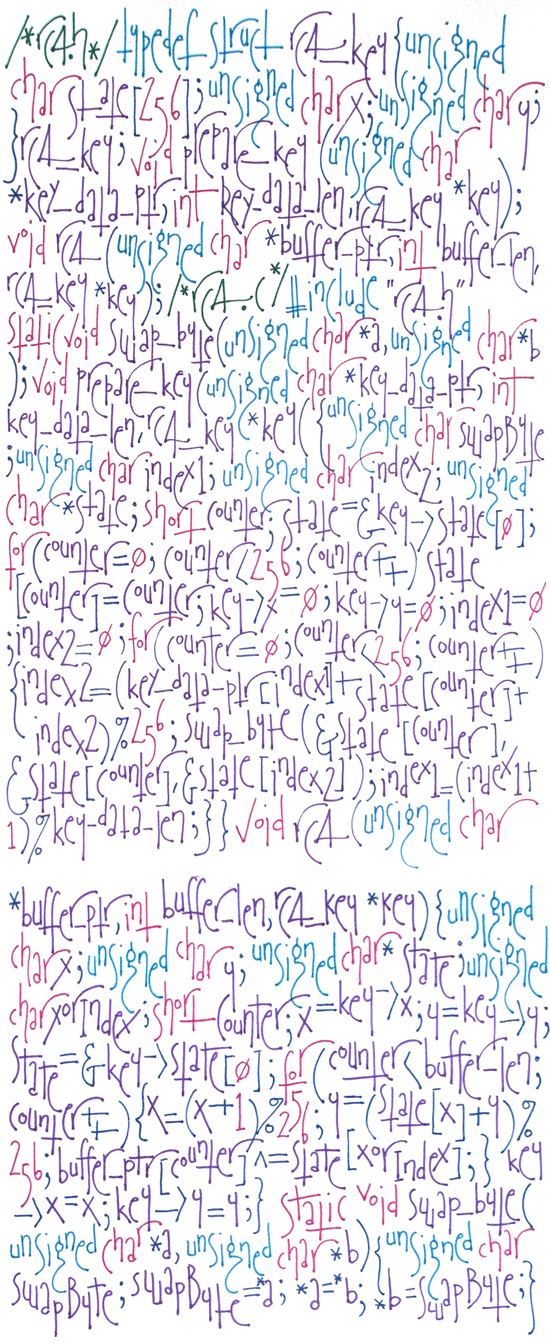 /*rc4.h*/ typedef struct rc4_key{unsigned
char state[256];unsigned char x;unsigned char y;
}rc4_key;void prepare_key(unsigned char
*key_data_ptr,int key_data_len,rc4_key *key);
void rc4(unsigned char *buffer_ptr,int buffer_len,
rc4_key *key);/*rc4.c*/#include "rc4.h"
static(void swap_byte(unsigned char*a,unsigned char*b
);void prepare_key(unsigned char *key_data_ptr,int
key_data_len,rc4_key *key({unsigned char swapByte
;unsigned char index1;unsigned char index2;unsigned
char*state;short counter;state=&key->state[0];
for(counter=0;counter<256;counter++)state
[counter]=counter;key->x=0;key->y=0;index1=0
;index2=0;for(counter=0;counter<256;counter++)
{index2=(key_data-ptr[index1]+state[counter]+
index2)%256;swap_byte(&state [counter],
&state[counter],&state[index2]);index1=(index1+
1)%key-data-len;}}void rc4(unsigned char
*buffer_ptr,int buffer_len,rc4_key *key){unsigned
char x;unsigned char y;unsigned char* state;unsigned
char xorIndex;short counter;x=key->x;y=key->y;
state=&key->state[0];for(counter<buffer-len;
counter++){x=(x+1)%256;y=(state[x]+y)%
256;buffer_ptr[counter]^=state[xorIndex];}key
->x=x;key->y=y;}static void swap_byte(
unsigned char *a,unsigned char *b){unsigned char
swapByte;swapByte=*a;*a=*b;*b=swapByte;}